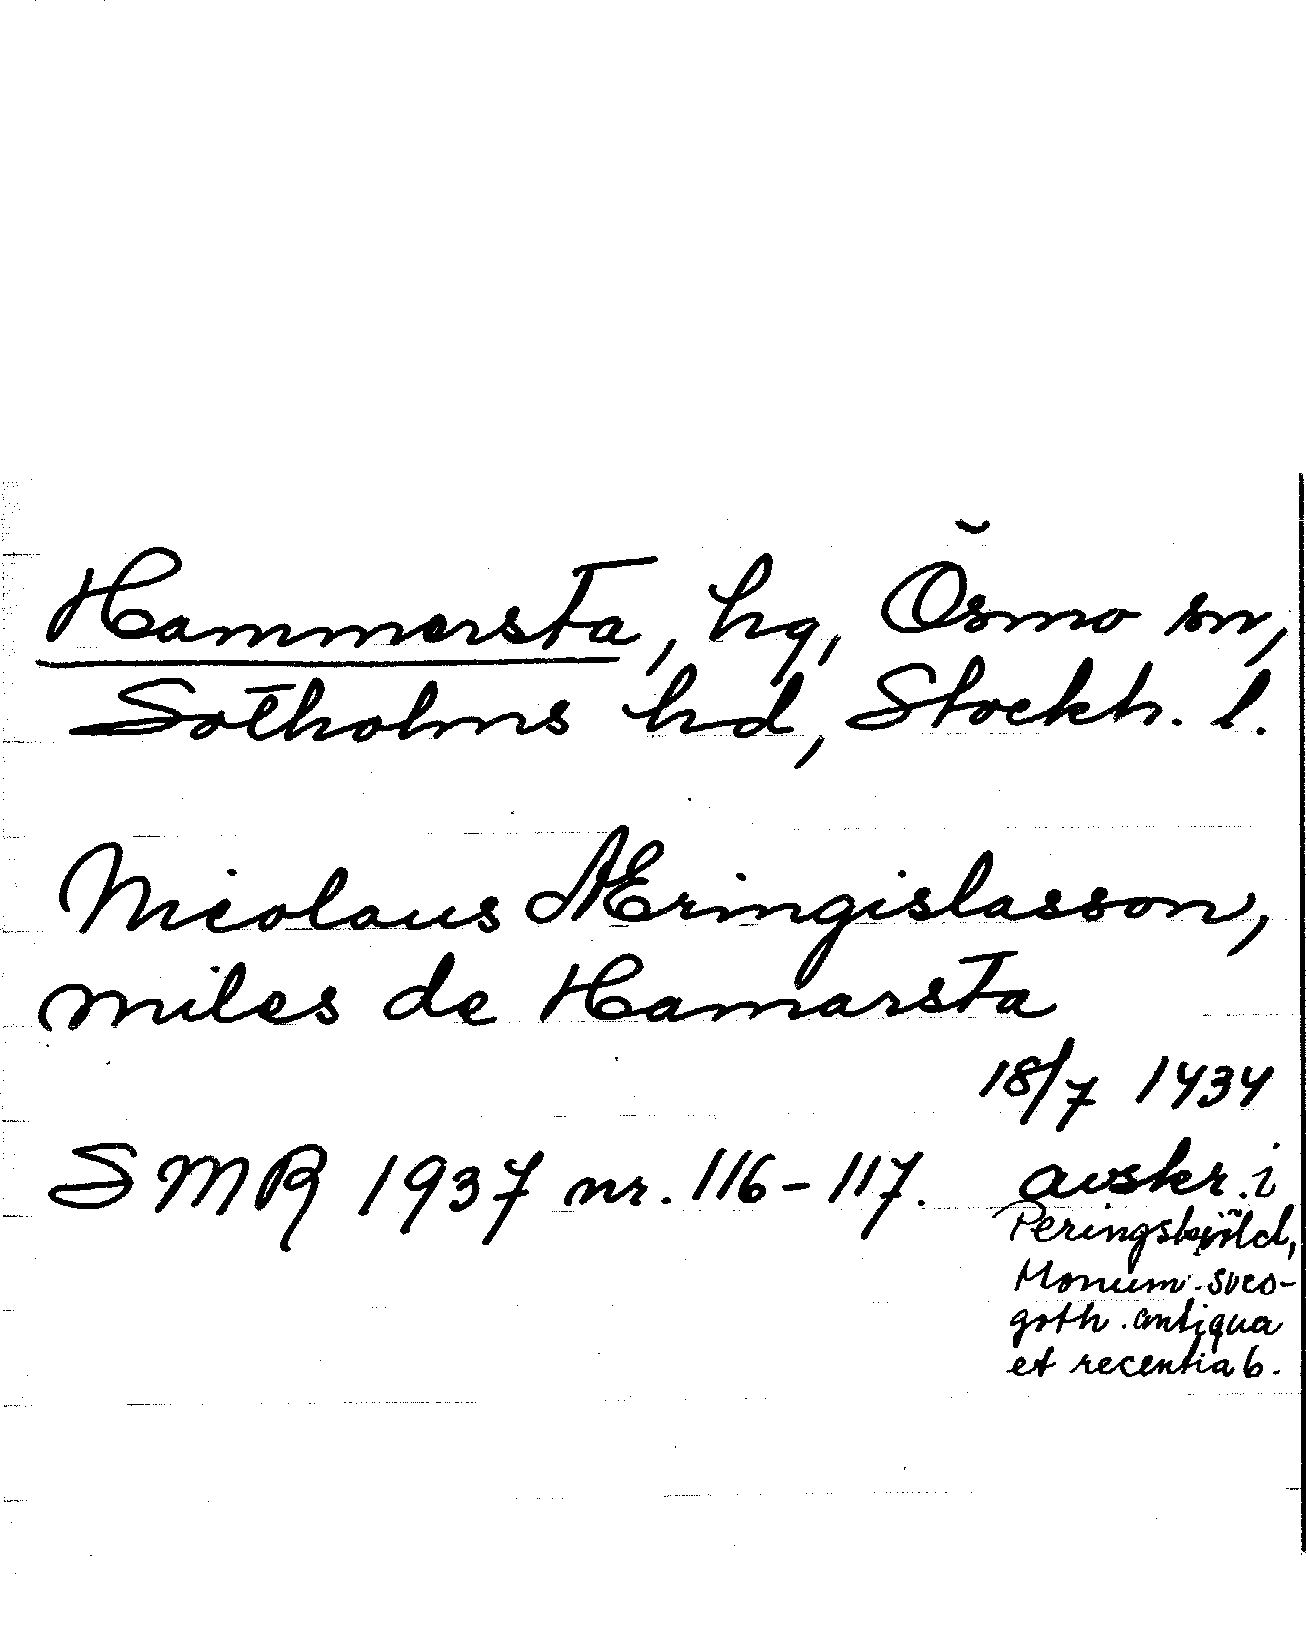 Hammersta, hg, Ösmo sn,
Sotholms hd, Stockh. l.
Nicolaus Æringislasson,
miles de Hamarsta
18/7 1434
SMR 1937 nr. 116-117. avskr. i
Peringskjöld,
Monum. sveo-
goth. antiqua
et recentia 6.